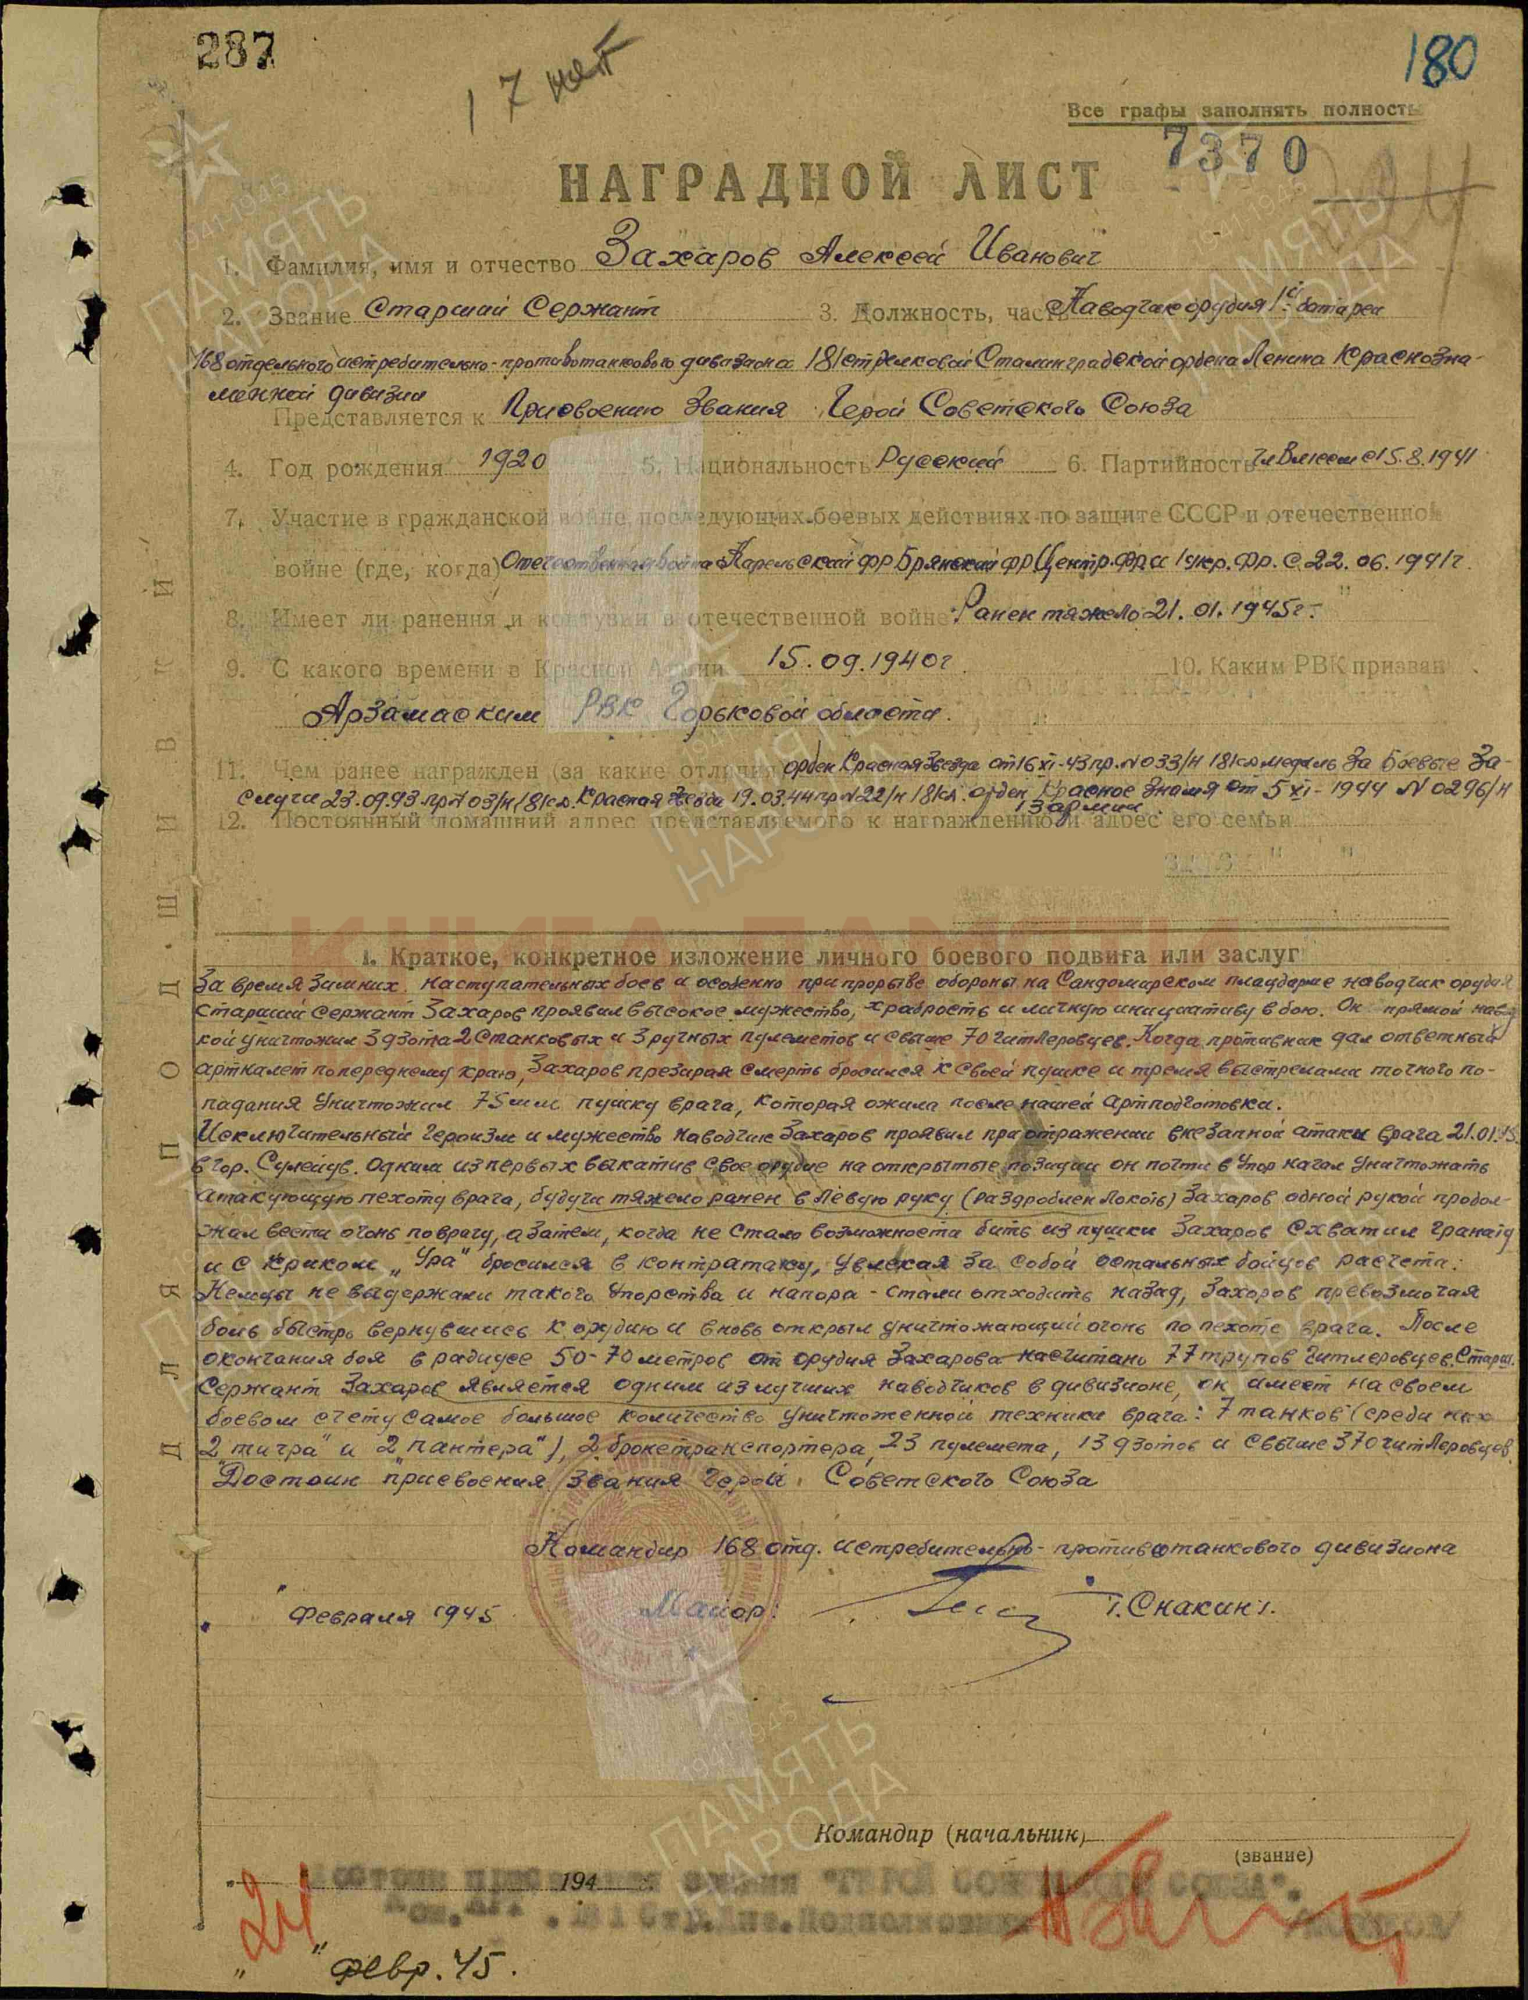 287
17 лет
180
Все графы заполнять полностью
7370
НАГРАДНОЙ ЛИСТ
1. Фамилия, имя и отчество Захаров Алексей Иванович
2. Звание Старший Сержант 3. Должность, часть Наводчик орудия 1й батареи
168 отдельного истребительно-противотанкового дивизиона 181 стрелковой Сталинградской ордена Ленина Краснозна-
менной дивизии
Представляется к Присвоению Звания Герой Советского Союза
4. Год рождения 1920 5. Национальность Русский 6. Партийность Чл Влксм с 15.8.1941
7. Участие в гражданской войне, последующих боевых действиях по защите СССР и отечественной
войне (где, когда) Отечественная война Карельский фр Брянский фр Центр. фр и 1 укр. Фр. с 22.06.1941г.
8. Имеет ли ранения и контузии в отечественной войне Ранен тяжело 21.01.1945г.
9. С какого времени в Красной Армии 15.09.1940г. 10. Каким РВК призван
Арзамаским РВК Горьковой области.
11. Чем ранее награжден (за какие отличия) орден Красная Звезда от 16 XI-43 пр. N 033/н 181сд медаль За Боевые За-
слуги 23.09.93 пр N 03/н 181сд. Красная Звезда 19.03.44 пр N 22/н 181сд. орден Красное Знамя от 5 XI-1944 N 0296/н
13 армии.
12. Постоянный домашний адрес представляемого к награждению и адрес его семьи
I. Краткое, конкретное изложение личного боевого подвига или заслуг
За время зимних наступательных боев и особенно при прорыве обороны на Сандомирском плацдарме наводчик орудия
старший сержант Захаров проявил высокое мужество, храбрость и личную инициативу в бою. Он прямой навод
кой уничтожил 3 дзота 2 станковых и 3 ручных пулеметов и свыше 70 гитлеровцев. Когда противник дал ответный
артналет по переднему краю, Захаров презирая смерть бросился к своей пушке и тремя выстрелами точного по-
падания уничтожил 75 мм пушку врага, которая ожила после нашей артподготовки.
Исключительный героизм и мужество наводчик Захаров проявил при отражении внезапной атаки врага 21.01.45.
в гор. Сулейув. Одним из первых выкатив свое орудие на открытые позиции он почти в упор начал уничтожать
атакующую пехоту врага, будучи тяжело ранен в левую руку (раздроблен локоть) Захаров одной рукой продол-
жал вести огонь по врагу, а затем, когда не стало возможности бить из пушки Захаров схватил гранату
и с криком „Ура" бросился в контратаку, увлекая за собой остальных бойцов расчета.
Немцы не выдержали такого упорства и напора - стали отходить назад, Захаров превозмогая
боль быстро вернувшись к орудию и вновь открыл уничтожающий огонь по пехоте врага. После
окончания боя в радиусе 50-70 метров от орудия Захарова насчитано 77 трупов гитлеровцев. Старш.
Сержант Захаров является одним из лучших наводчиков в дивизионе, он имеет на своем
боевом счету самое большое количество уничтоженной техники врага: 7 танков (среди них
2 „тигра" и 2 „пантера"), 2 бронетранспортера, 23 пулемета, 13 дзотов и свыше 370 гитлеровцев.
Достоин присвоения звания Герой Советского Союза
Командир 168 отд. истребительно-противотанкового дивизиона
" Февраля 1945 Майор: /Снакин/.
ДЛЯ ПОДШИВКИ
Командир (начальник)
(звание)
194
Достоин присвоения звания "ГЕРОЙ СОВЕТСКОГО СОЮЗА".
Ком. 181 Стр. Див. Подполковник
24
" " февр. 45.
КНИГА ПАМЯТИ
1941-1945
ПАМЯТЬ НАРОДА